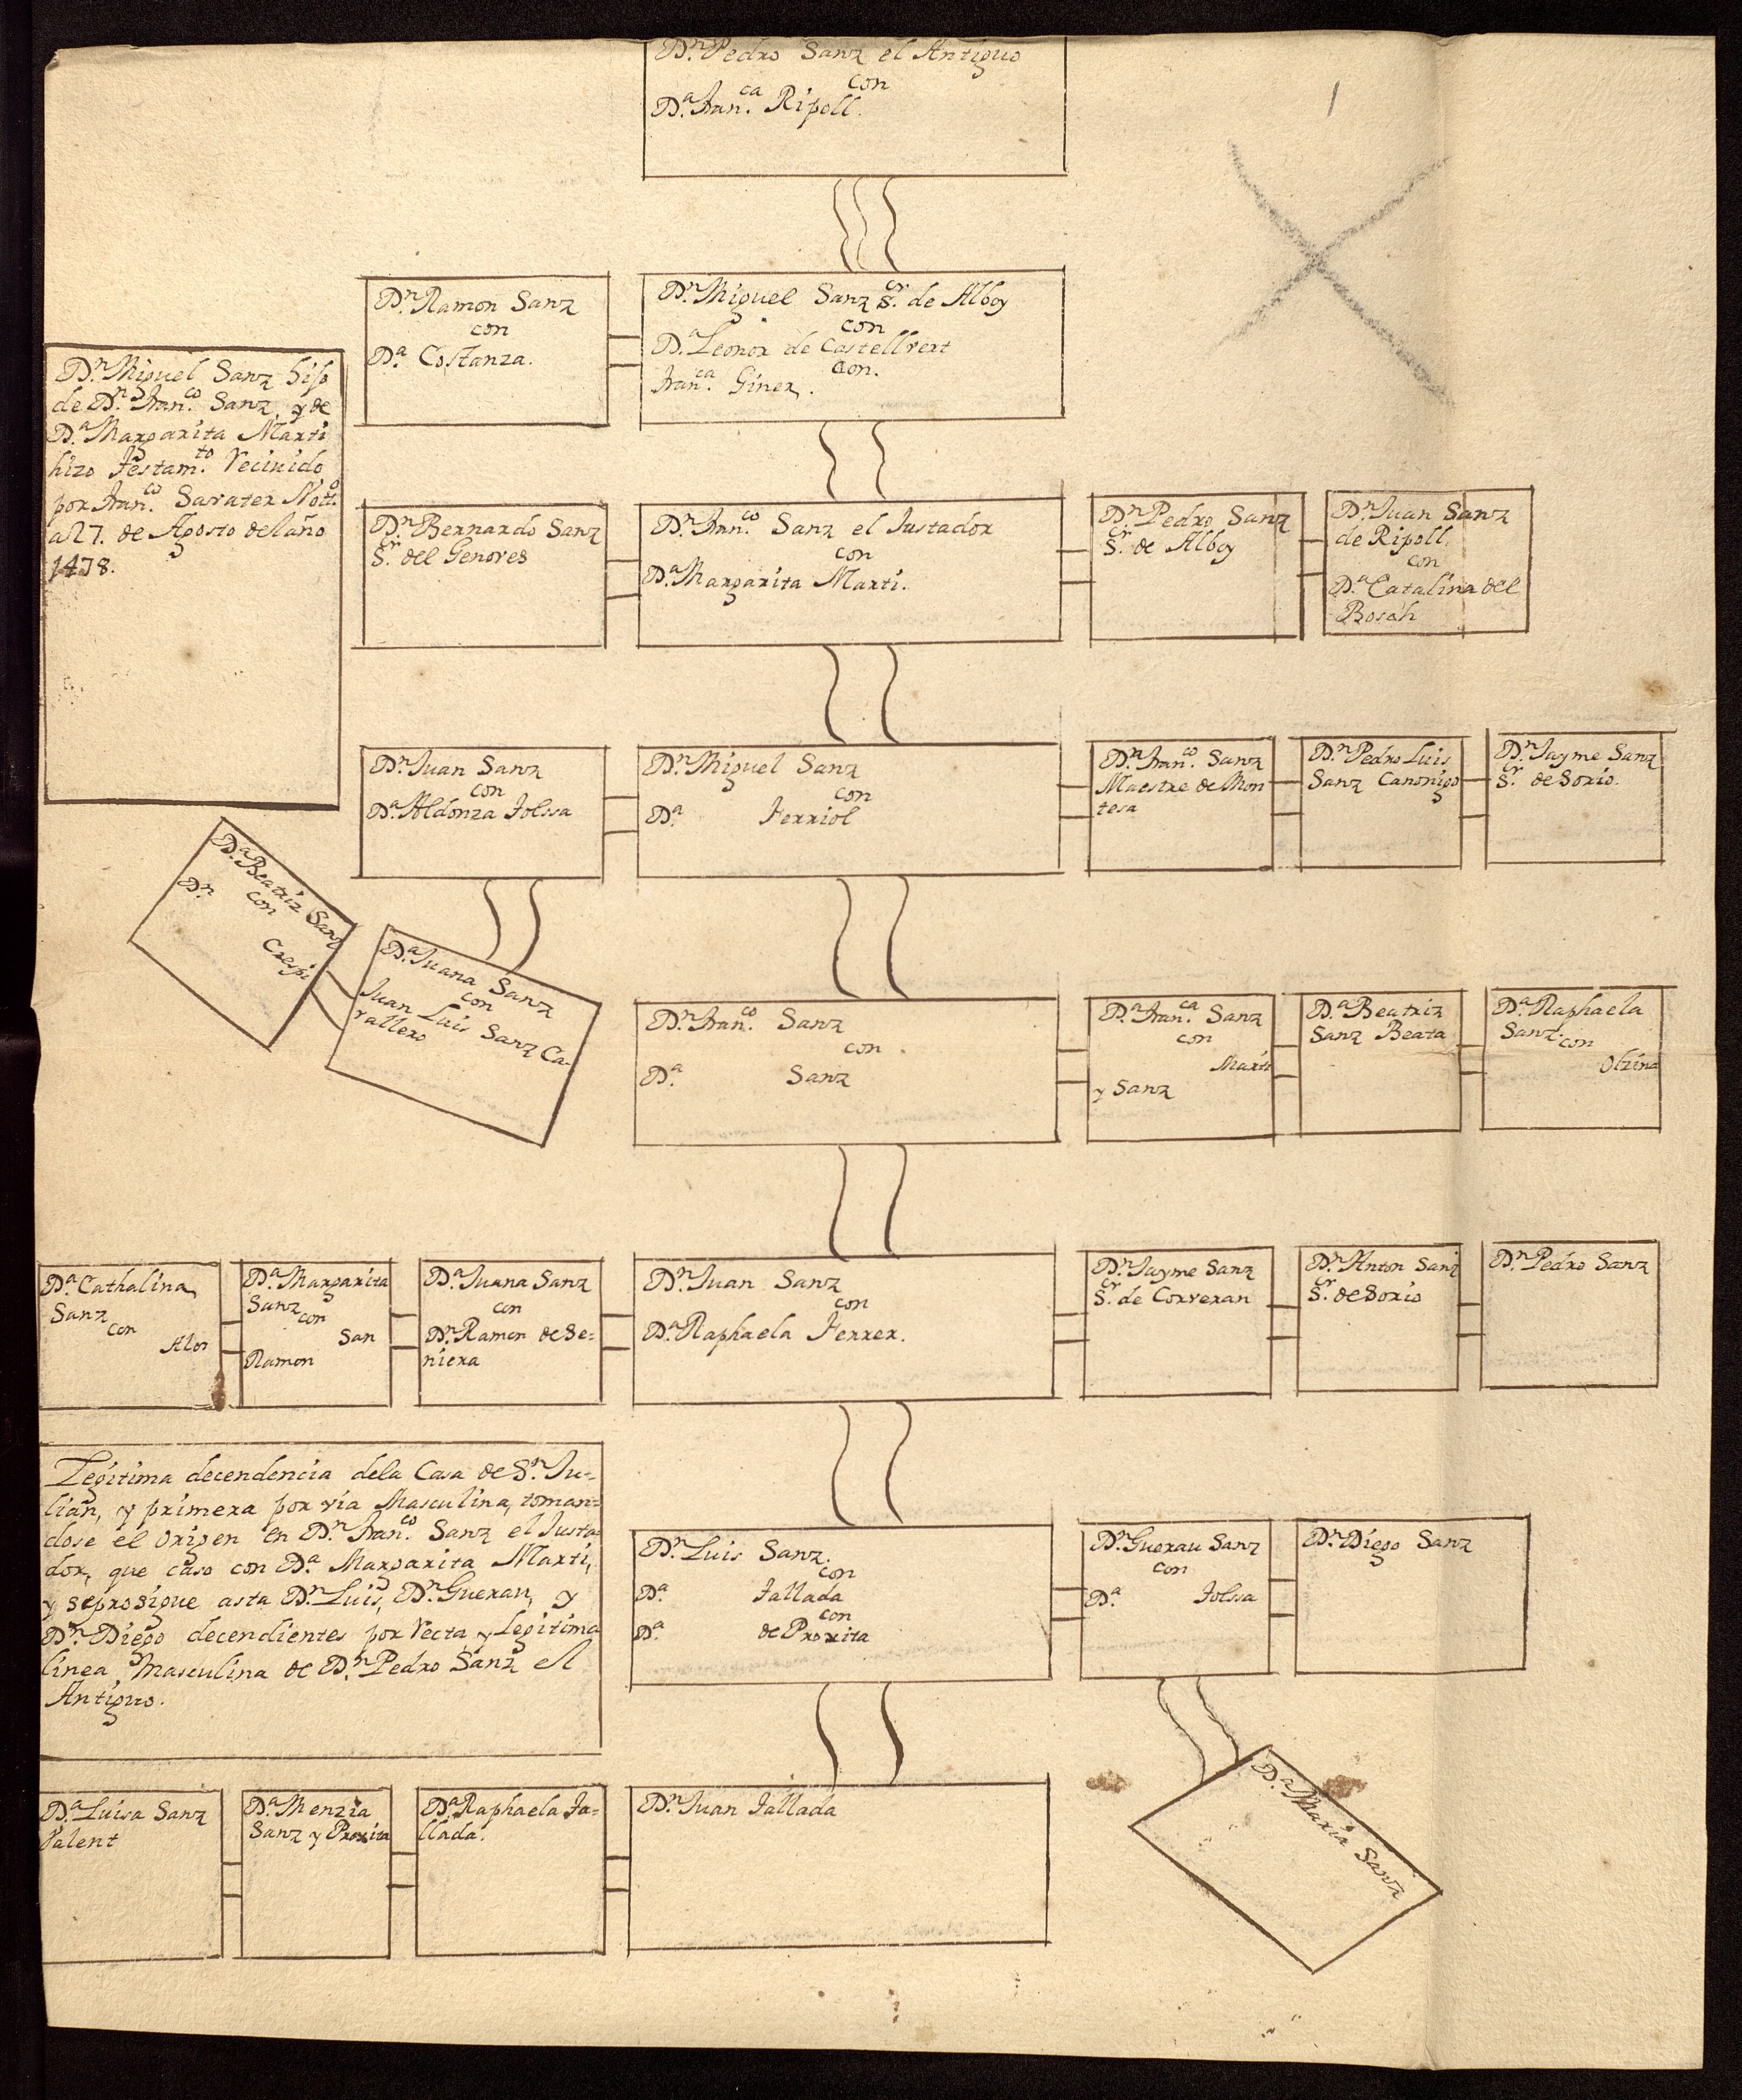 1
Dⁿ. Pedro Sanz el Antiguo
con
Dª. Franᶜᵃ. Ripoll.
Dⁿ. Ramon Sanz
con
Dª. Costanza.
Dⁿ. Miguel Sanz Sʳ. de Alboy
con
Dª. Leonor de Castellvert
con.
Franᶜᵃ. Giner.
Dⁿ. Miguel Sanz hijo
de Dⁿ. Franᶜᵒ. Sanz, y de
Dª. Margarita Marti
hizo Testamᵗᵒ. recivido
por Franᶜᵒ. Savater Notº.
a 27. de Agosto del año
1478.
Dⁿ. Bernardo Sanz
Sʳ. del Genoves
Dⁿ. Franᶜᵒ. Sanz el Justador
con
Dª. Margarita Marti.
Dⁿ. Pedro Sanz
Sʳ. de Alboy
Dⁿ. Juan Sanz
de Ripoll.
con
Dª. Catalina del
Bosch
Dⁿ. Juan Sanz
con
Dª. Aldonza Jolssa
Dⁿ. Miguel Sanz
con
Dª. Ferriol
Dⁿ. Franᶜᵒ. Sanz
Maestre de Mon
tesa
Dⁿ. Pedro Luis
Sanz Canonigo
Dⁿ. Jayme Sanz
Sʳ. de Sorio.
Dª. Beatriz Sanz
con
Dⁿ. Crespi
Dª. Juana Sanz
con
Juan Luis Sanz Ca-
vallero
Dⁿ. Franᶜᵒ. Sanz
con.
Dª. Sanz
Dª. Franᶜᵃ. Sanz
con
Marti
y Sanz
Dª. Beatriz
Sanz Beata
Dª. Raphaela
Sanz. con
Olzina
Dª. Cathalina
Sanz
con
Alos
Dª. Margarita
Sanz con
San
Ramon
Dª. Juana Sanz
con
Dⁿ. Ramon de Se=
niera
Dⁿ. Juan Sanz
con
Dª. Raphaela Ferrer.
Dⁿ. Jayme Sanz
Sʳ. de Corveran
Dⁿ. Anton Sanz
Sʳ. de Sorio
Dⁿ. Pedro Sanz
Legitima decendencia dela Casa de Sⁿ. Ju-
lian, y primera por via Masculina, toman=
dose el origen en Dⁿ. Franᶜᵒ. Sanz el Justa-
dor, que caso con Dª. Margarita Marti,
y seprosigue asta Dⁿ. Luis, Dⁿ. Guerau, y
Dⁿ. Diego decendientes por recta, y Legitima
linea Masculina de Dⁿ. Pedro Sanz el
Antiguo.
Dⁿ. Luis Sanz.
con
Dª. Tallada
con
Dª. de Proxita
Dⁿ. Guerau Sanz
con
Dª. Jolssa
Dⁿ. Diego Sanz
Dª. Luisa Sanz
Valent
Dª. Menzia
Sanz y Proxita
Dª. Raphaela Ta=
llada.
Dⁿ. Juan Tallada
Dª. Maria Sanz